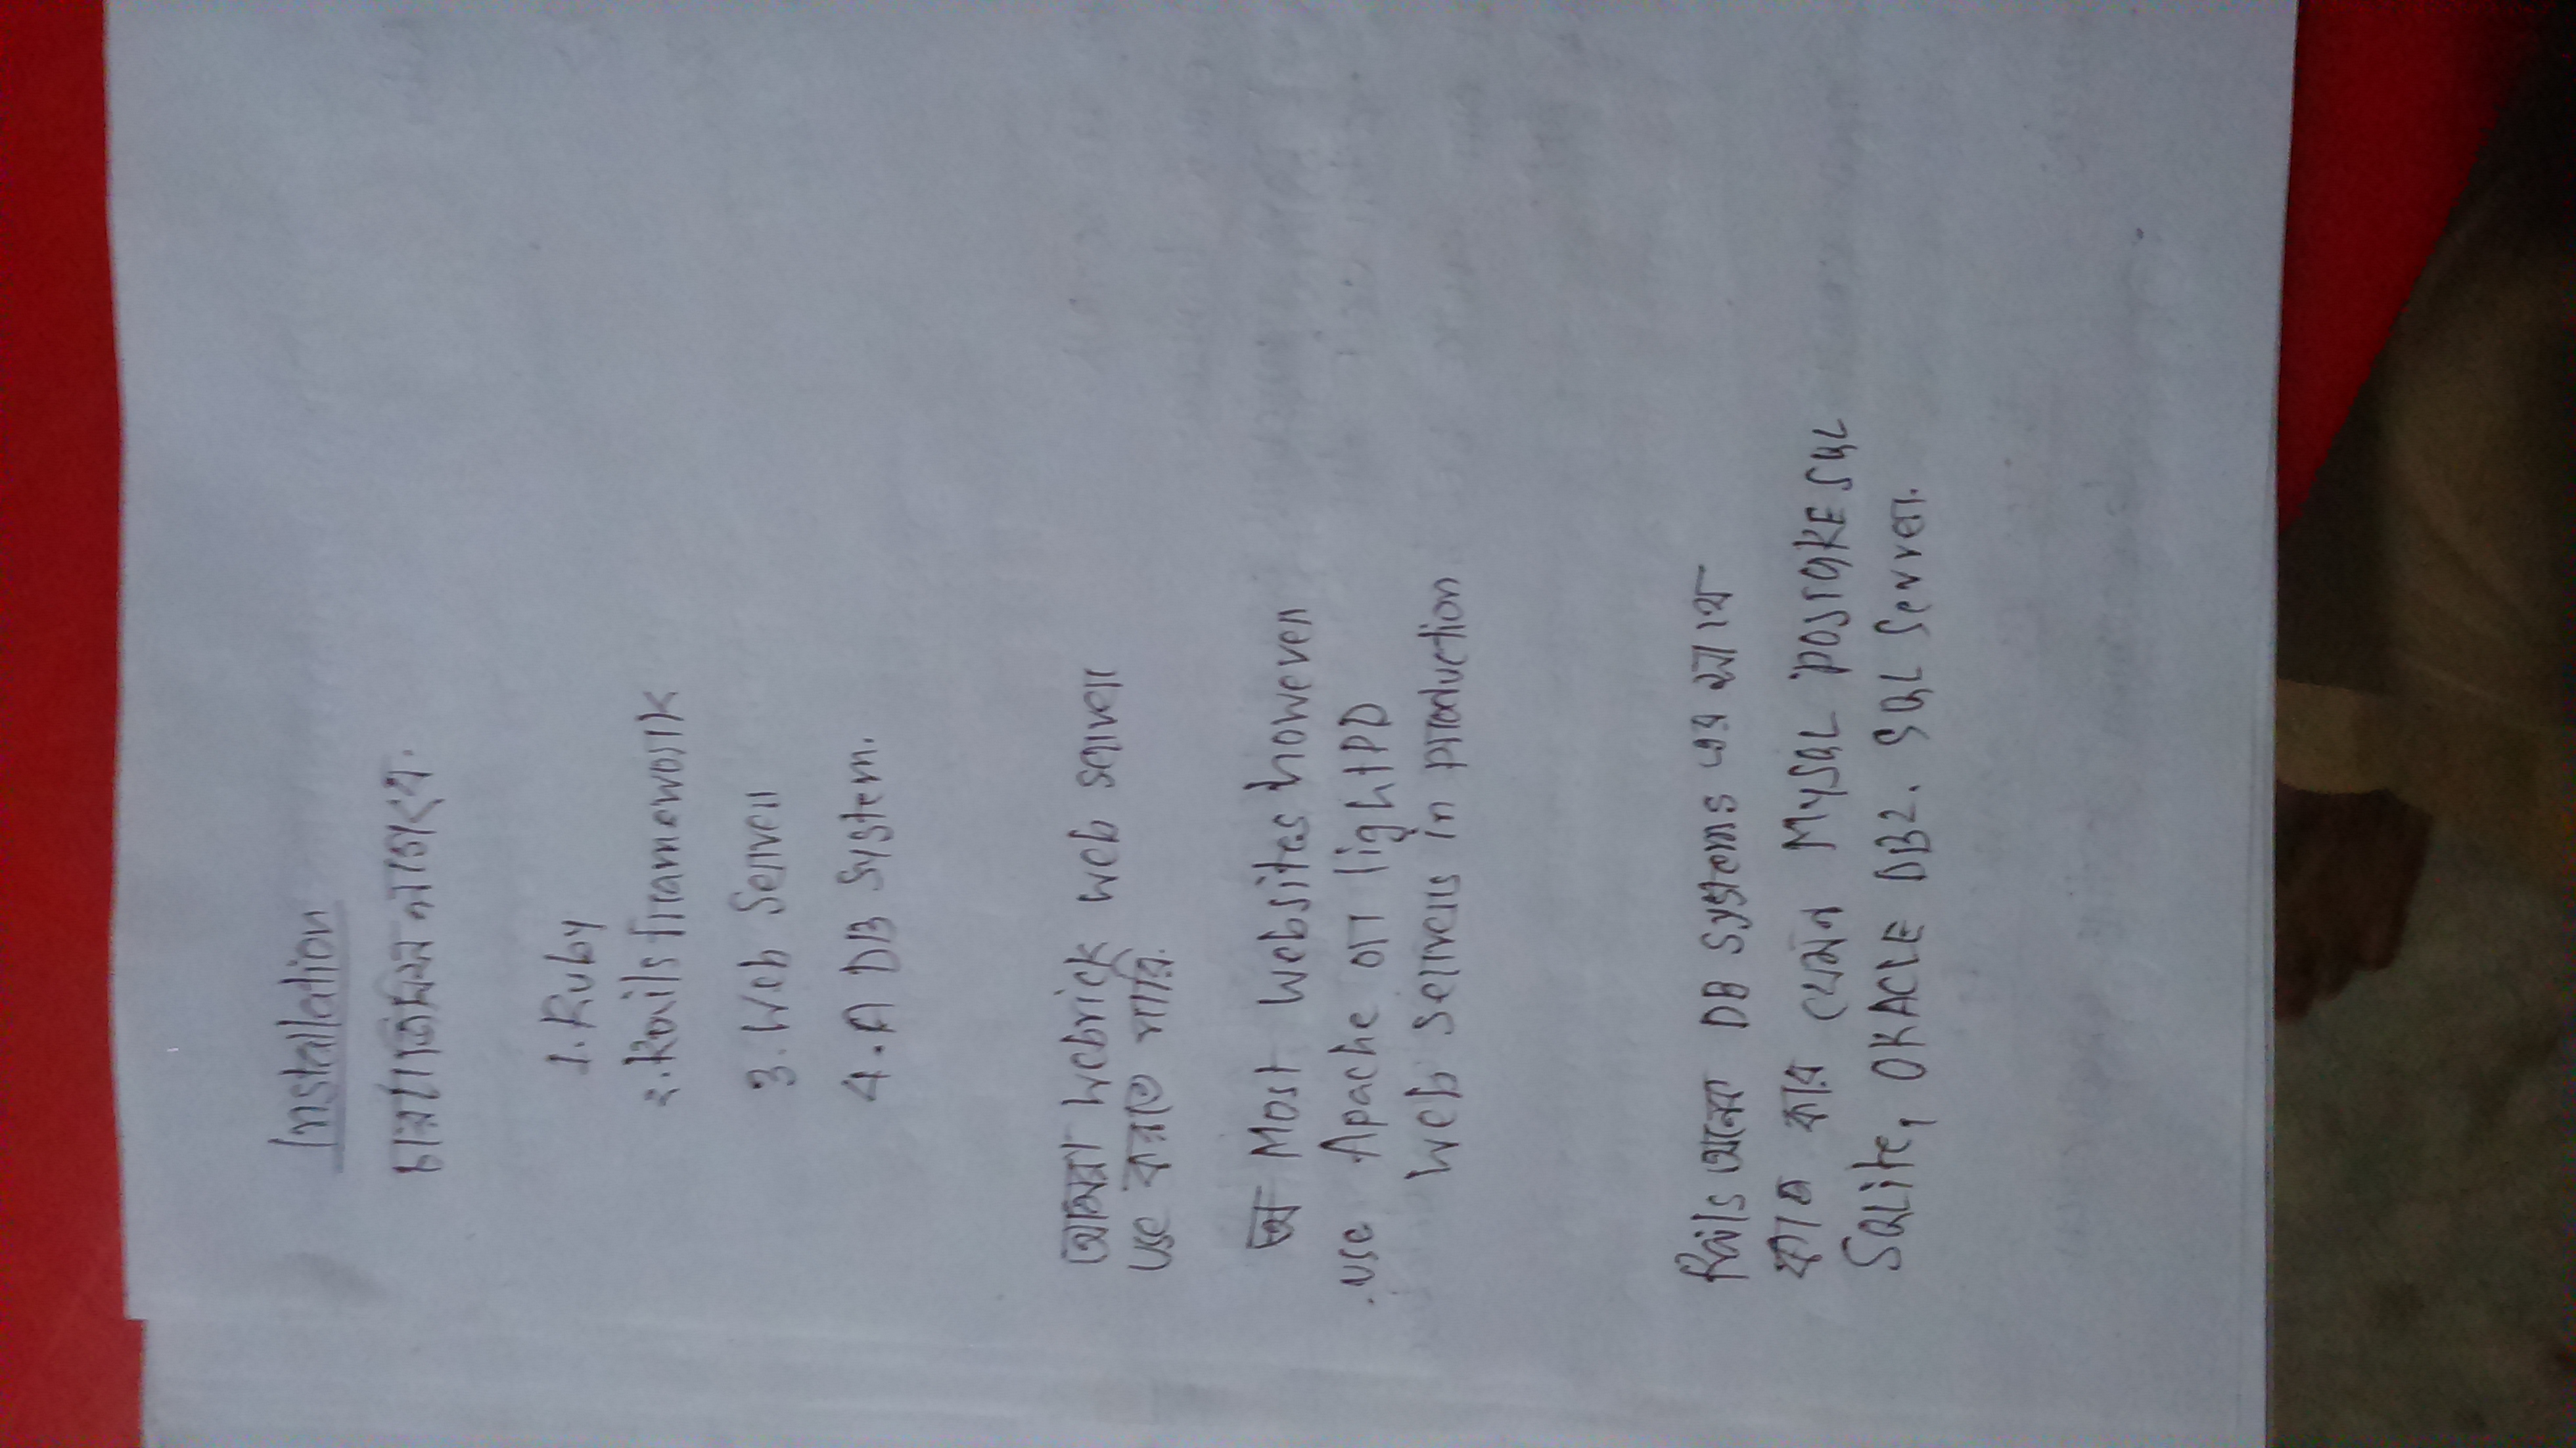 Installation
চারটা জিনিস লাগবে.
1. Ruby
2. Rails framework
3. Web Server
4. A DB System.
আমরা Webrick web server
use করতে পারি.
Most Websites however
use Apache or lightPD
Web servers in production
Rails অনেক DB systems এর সাথে
কাজ করে যেমন MySQL POSTGRESQL
SQLite, ORACLE DB2. SQL Server.